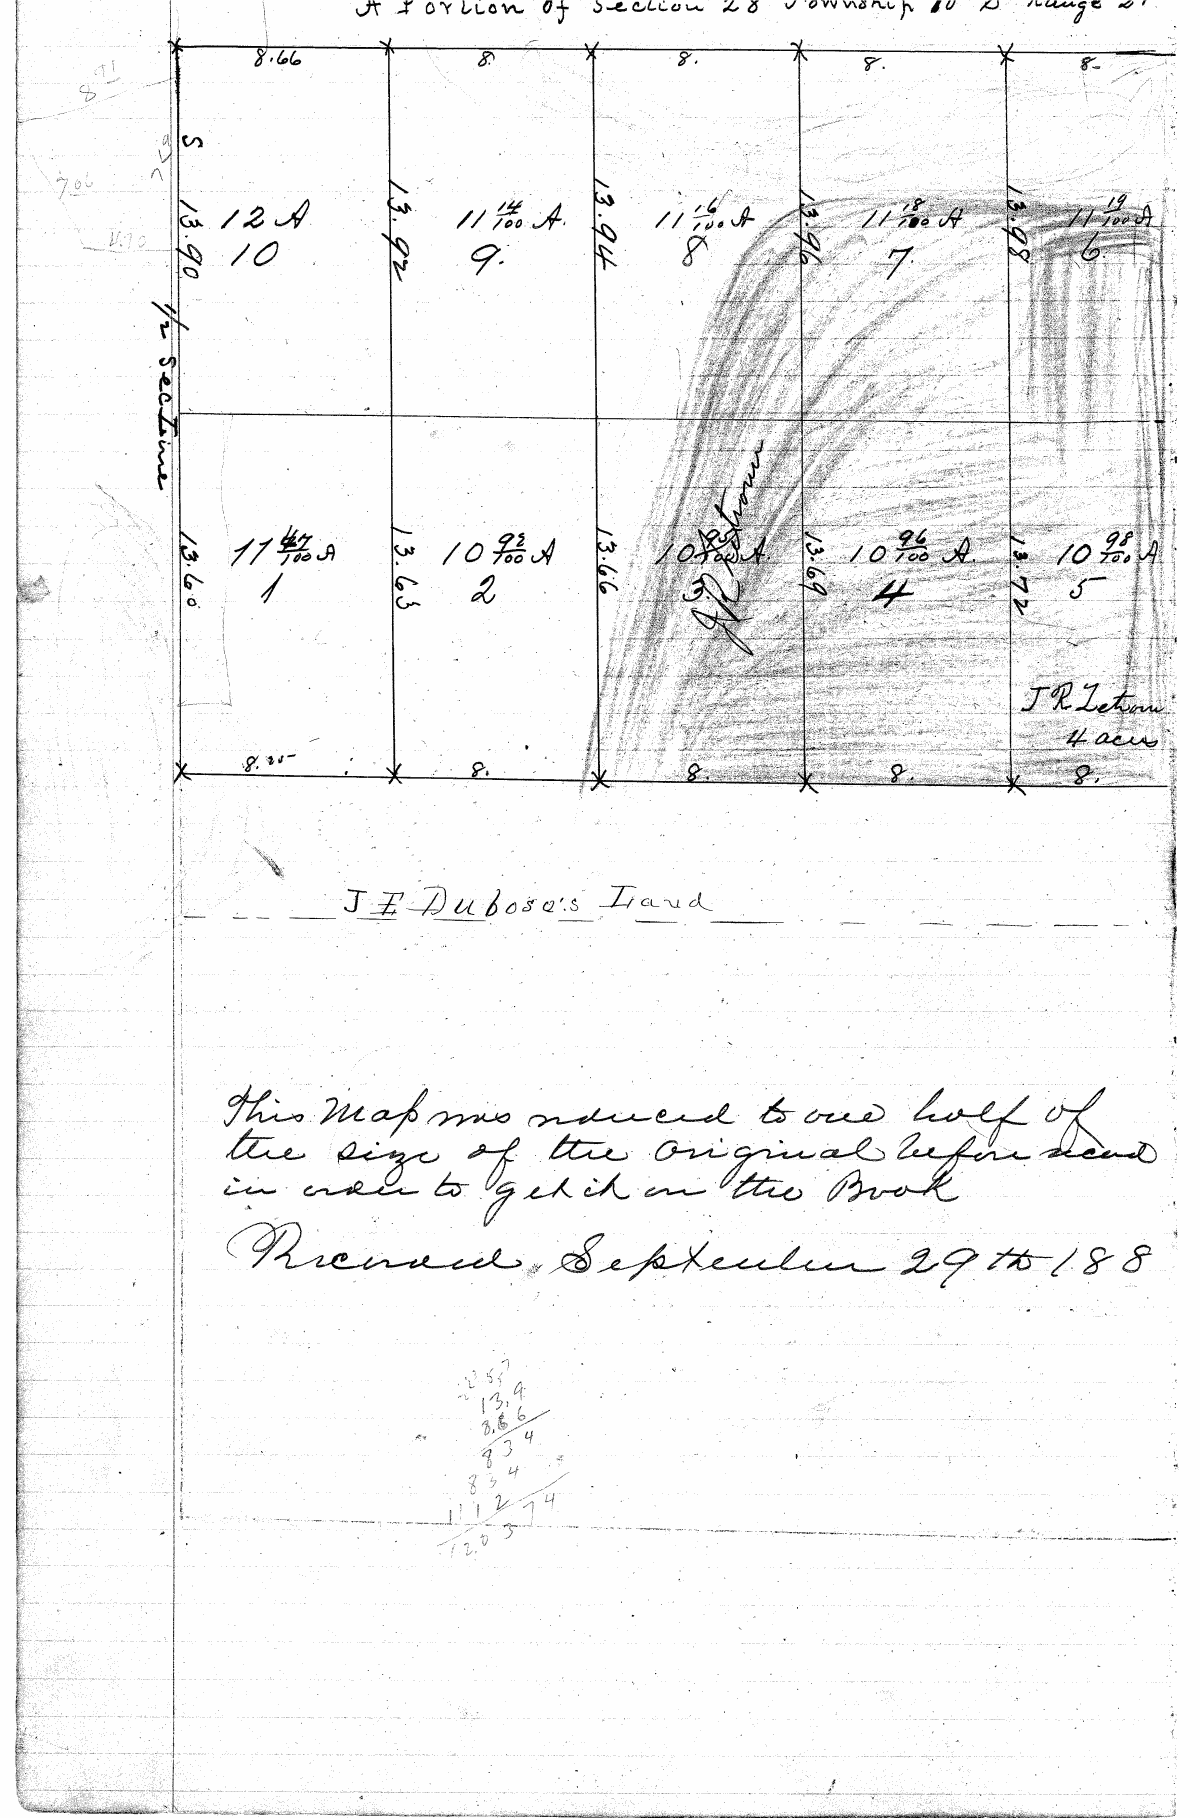 A Portion of Section 28 Township 10 S Range 2
8.66 8. 8. 8. 8-
8 71
S
7.06
11.70
13.90 12 A 13.92 11 14/100 A. 13.94 11 16/100 A 13.96 11 18/100 A 13.98 11 19/100 A
10 9. 8 7. 6.
1/2 Sec Line
13.60 11 47/100 A 13.63 10 92/100 A 13.66 10 95/100 A. 13.69 10 96/100 A. 13.72 10 98/100 A
1 2 3 4 5
J R Zetrouer
J R Zetrouer
4 acres
8.35 8. 8. 8. 8.
J E Dubose's Land
This Map was reduced to one half of
the size of the original before
in order to get it on the Book
Recorded September 29th 188
13.9
8.66
834
834
1112
120374